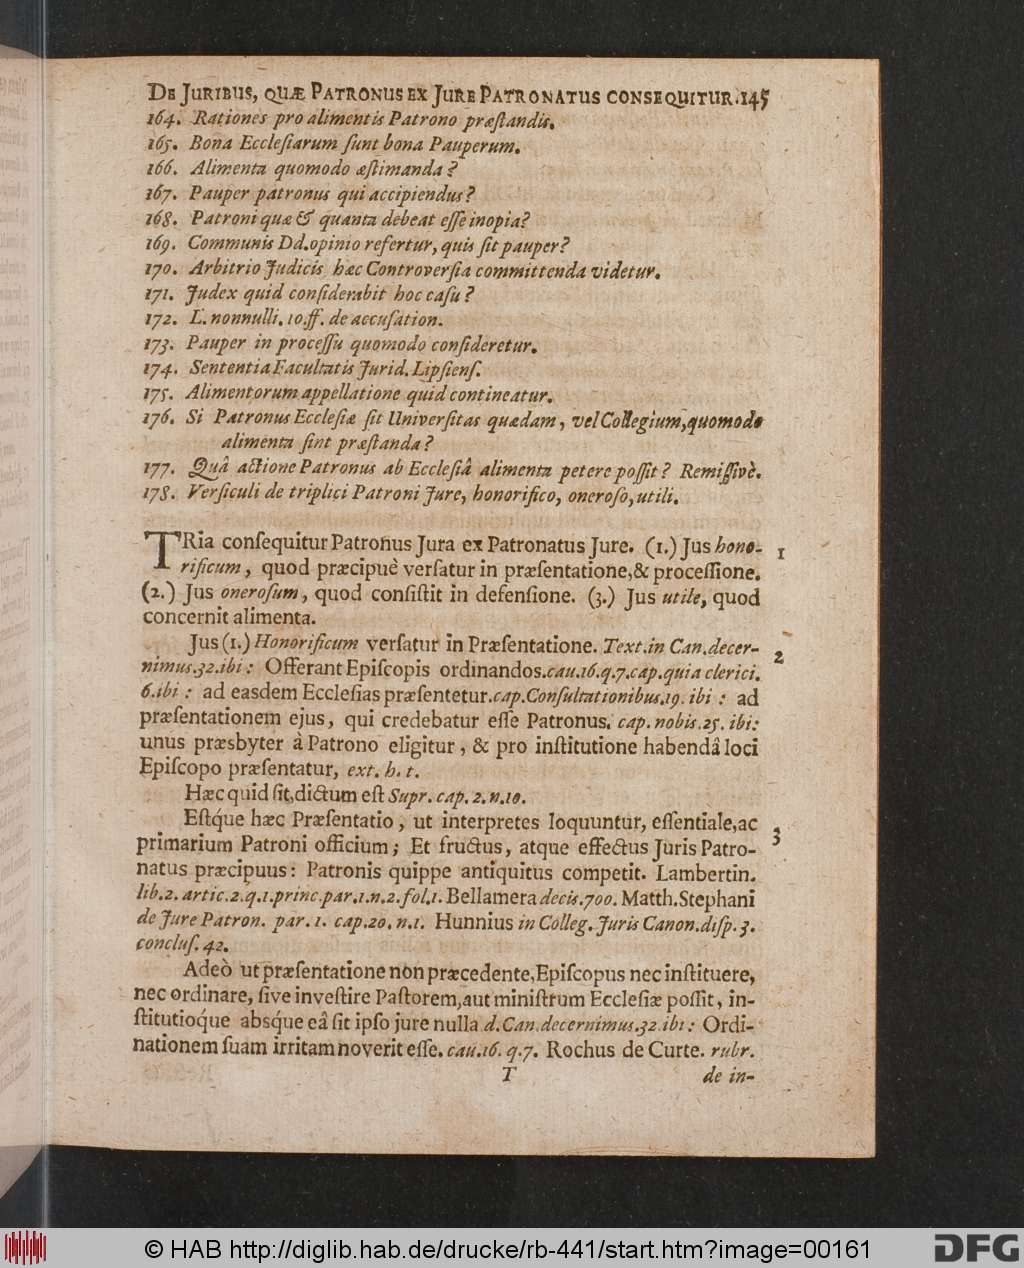 DE JURIBUS, QUÆ PATRONUS EX JURE PATRONATUS CONSEQUITUR. 145
164. Rationes pro alimentis Patrono præſtandis.
165. Bona Eccleſiarum ſunt bona Pauperum.
166. Alimenta quomodo æſtimanda?
167. Pauper patronus qui accipiendus?
168. Patroni quæ & quanta debeat eſſe inopia?
169. Communis Dd. opinio refertur, quis ſit pauper?
170. Arbitrio Judicis hæc Controverſia committenda videtur.
171. Judex quid conſiderabit hoc caſu?
172. L. nonnulli. 10. ff. de accuſation.
173. Pauper in proceſſu quomodo conſideretur.
174. Sententia Facultatis Jurid. Lipſienſ.
175. Alimentorum appellatione quid contineatur.
176. Si Patronus Eccleſiæ ſit Univerſitas quædam, vel Collegium, quomodo
alimenta ſint præſtanda?
177. Quâ actione Patronus ab Eccleſiâ alimenta petere poſſit? Remiſſivè.
178. Verſiculi de triplici Patroni Jure, honorifico, oneroſo, utili.
TRia conſequitur Patronus Jura ex Patronatus Jure. (1.) Jus hono- 1
rificum, quod præcipuè verſatur in præſentatione, & proceſſione.
(2.) Jus oneroſum, quod conſiſtit in defenſione. (3.) Jus utile, quod
concernit alimenta.
Jus (1.) Honorificum verſatur in Præſentatione. Text. in Can. decer- 2
nimus. 32. ibi: Offerant Epiſcopis ordinandos. cau. 16. q. 7. cap. quia clerici.
6. ibi: ad easdem Eccleſias præſentetur. cap. Conſultationibus. 19. ibi: ad
præſentationem ejus, qui credebatur eſſe Patronus. cap. nobis. 25. ibi:
unus præsbyter à Patrono eligitur, & pro inſtitutione habendâ loci
Epiſcopo præſentatur, ext. h. t.
Hæc quid ſit, dictum eſt Supr. cap. 2. n. 10.
Eſtq́ue hæc Præſentatio, ut interpretes loquuntur, eſſentiale, ac 3
primarium Patroni officium; Et fructus, atque effectus Juris Patro-
natus præcipuus: Patronis quippe antiquitus competit. Lambertin.
lib. 2. artic. 2. q. 1. princ. par. 1. n. 2. fol. 1. Bellamera decis. 700. Matth. Stephani
de Jure Patron. par. 1. cap. 20. n. 1. Hunnius in Colleg. Juris Canon. diſp. 3.
concluſ. 42.
Adeò ut præſentatione non præcedente, Epiſcopus nec inſtituere,
nec ordinare, ſive inveſtire Paſtorem, aut miniſtrum Eccleſiæ poſſit, in-
ſtitutioq́ue absq́ue eâ ſit ipſo jure nulla d. Can. decernimus. 32. ibi: Ordi-
nationem ſuam irritam noverit eſſe. cau. 16. q. 7. Rochus de Curte. rubr.
T de in-
© HAB http://diglib.hab.de/drucke/rb-441/start.htm?image=00161 DFG